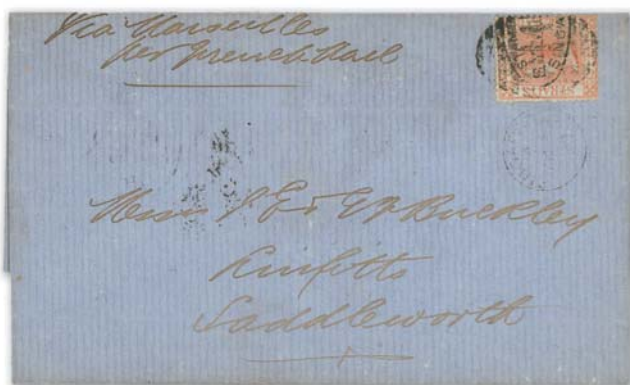 Via Marseilles
Per French Mail
Messrs J E & G F Buckley
Linfitts
Saddleworth